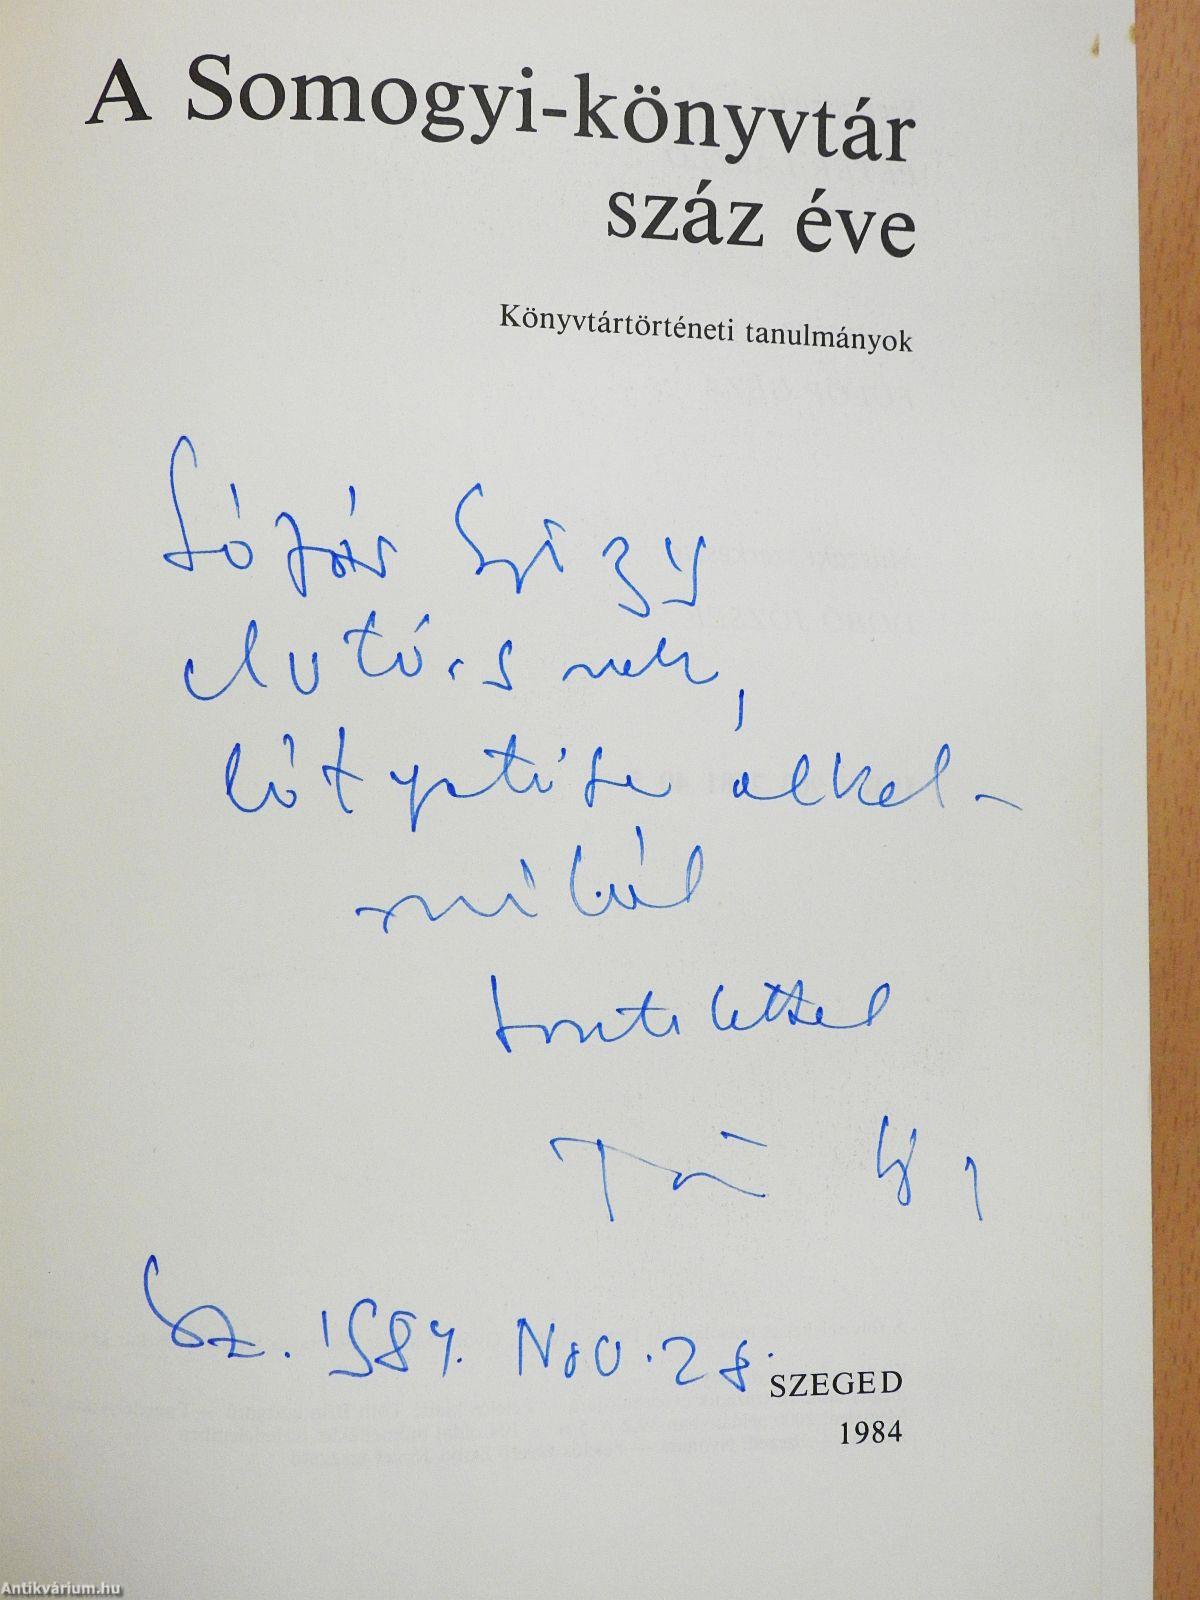 A Somogyi-könyvtár
száz éve
Könyvtártörténeti tanulmányok
elvtársnak,
látogatása alkal-
mából
tisztelettel
Sz. 1984. Nov. 28.
SZEGED
1984
Antikvárium.hu